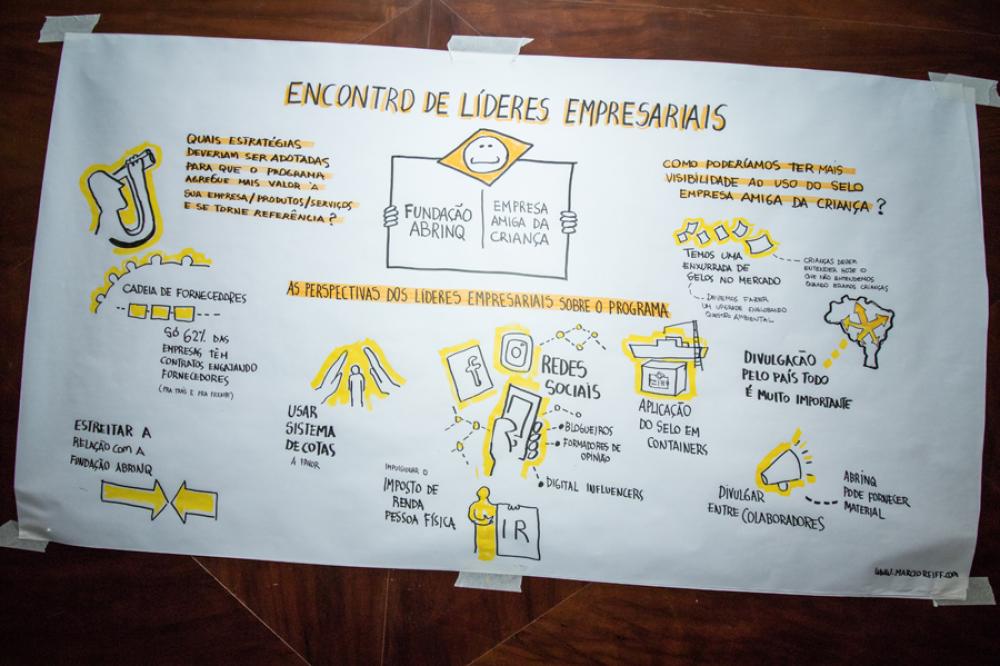 ENCONTRO DE LÍDERES EMPRESARIAIS
QUAIS ESTRATÉGIAS
DEVERIAM SER ADOTADAS
PARA QUE O PROGRAMA
AGREGUE MAIS VALOR À
SUA EMPRESA/PRODUTOS/SERVIÇOS
E SE TORNE REFERÊNCIA?
FUNDAÇÃO
ABRINQ
EMPRESA
AMIGA DA
CRIANÇA
COMO PODERÍAMOS TER MAIS
VISIBILIDADE AO USO DO SELO
EMPRESA AMIGA DA CRIANÇA?
CADEIA DE FORNECEDORES
SÓ 62% DAS
EMPRESAS TÊM
CONTRATOS ENGAJANDO
FORNECEDORES
(PRA TRÁS E PRA FRENTE)
AS PERSPECTIVAS DOS LÍDERES EMPRESARIAIS SOBRE O PROGRAMA
TEMOS UMA
ENXURRADA DE
SELOS NO MERCADO
CRIANÇAS DEVEM
ENTENDER HOJE O
QUE NÃO ENTENDEMOS
QUANDO ÉRAMOS CRIANÇAS
DEVEMOS FAZER
UM UPGRADE ENGLOBANDO
QUESTÃO AMBIENTAL
DIVULGAÇÃO
PELO PAÍS TODO
É MUITO IMPORTANTE
ESTREITAR A
RELAÇÃO COM A
FUNDAÇÃO ABRINQ
USAR
SISTEMA
DE COTAS
A FAVOR
f
REDES
SOCIAIS
BLOGUEIROS
FORMADORES DE
OPINIÃO
DIGITAL INFLUENCERS
APLICAÇÃO
DO SELO EM
CONTAINERS
IMPULSIONAR O
IMPOSTO DE
RENDA
PESSOA FÍSICA
IR
DIVULGAR
ENTRE COLABORADORES
ABRINQ
PODE FORNECER
MATERIAL
WWW.MARCIOREIFF.COM